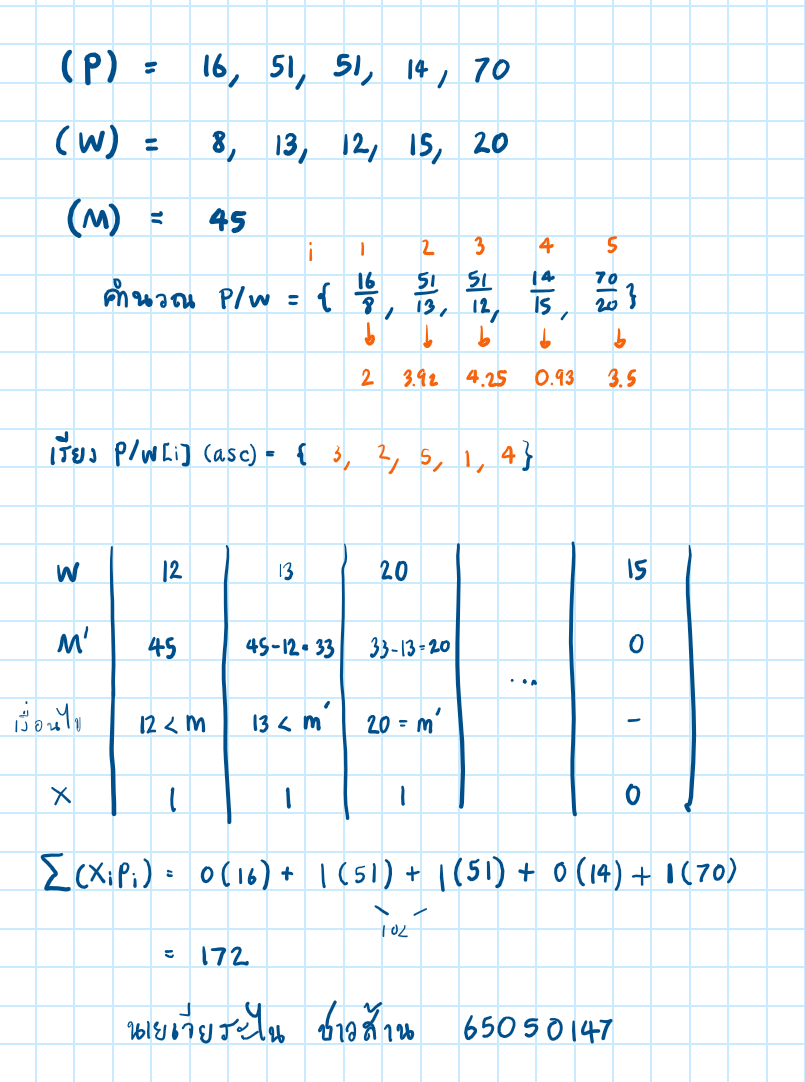 (P) = 16, 51, 51, 14, 70
(W) = 8, 13, 12, 15, 20
(M) = 45
i 1 2 3 4 5
คำนวณ P/W = { 16/8, 51/13, 51/12, 14/15, 70/20 }
↓ ↓ ↓ ↓ ↓
2 3.92 4.25 0.93 3.5
เรียง P/W[i] (asc) = { 3, 2, 5, 1, 4 }
W 12 13 20 15
M' 45 45-12=33 33-13=20 ... 0
เงื่อนไข 12 < M 13 < m' 20 = m' -
X 1 1 1 0
∑(XiPi) = 0(16) + 1(51) + 1(51) + 0(14) + 1(70)
102
= 172
65050147